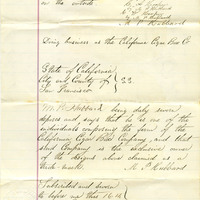 on the outside
M. P. Hubbard
Doing business as the California Cigar Box Co
State of California
City and County of } SS.
San Francisco
M. P. Hubbard being duly sworn
deposes and says that he is one of the
individuals composing the firm of the
California Cigar Box Company, and that the
said Company is the exclusive owner
of the designs above claimed as a
trade mark. M. P. Hubbard
Subscribed and sworn
to before me this 16th